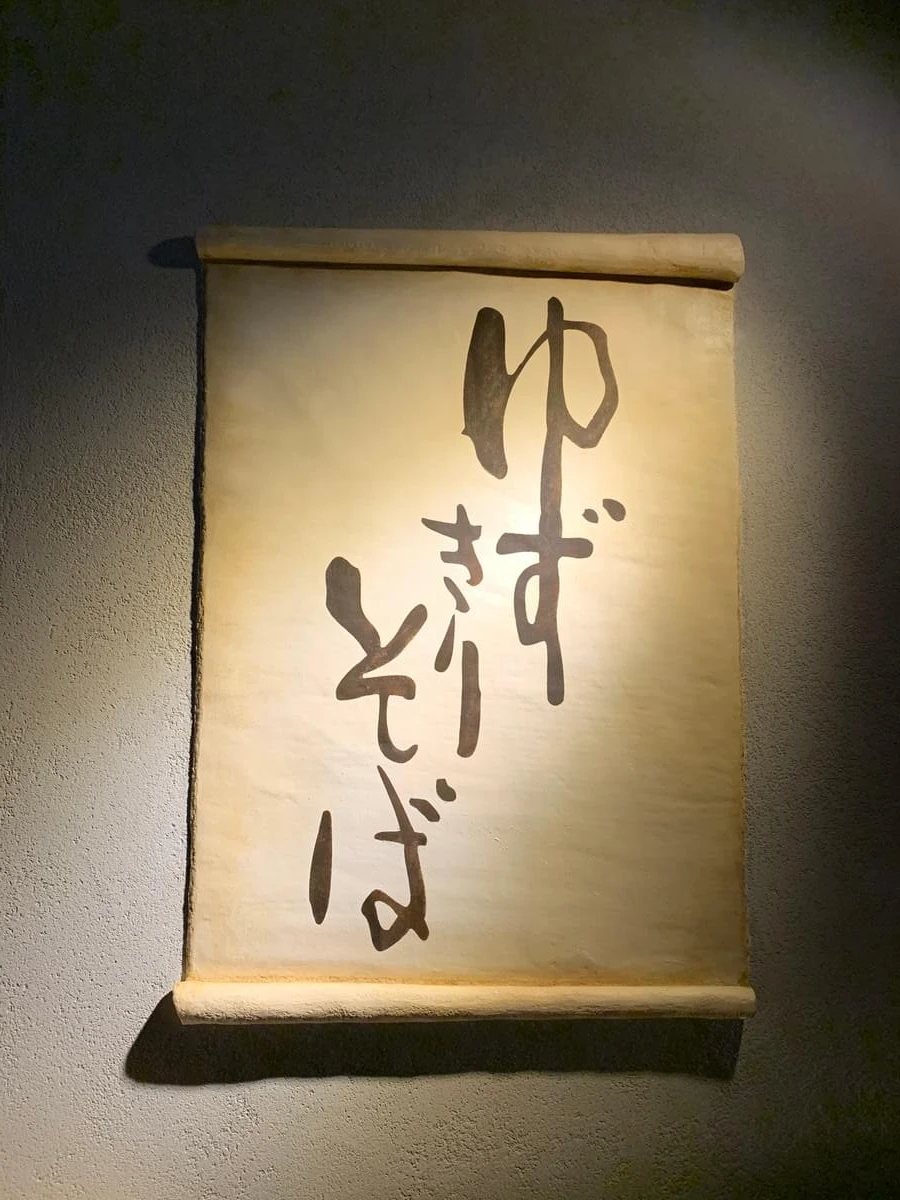 ゆず
きり
そば